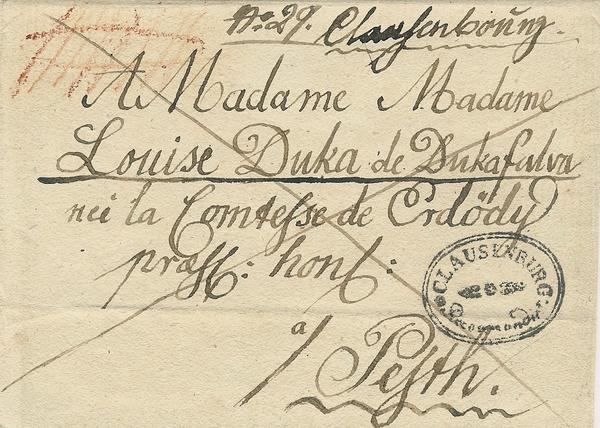 No. 29. Clausenbourg.
A Madame Madame
Louise Duka de Dukafalva
neé la Comtesse de Erdödÿ
præss: hons:
a Pesth.
CLAUSENBURG
Recommandirt